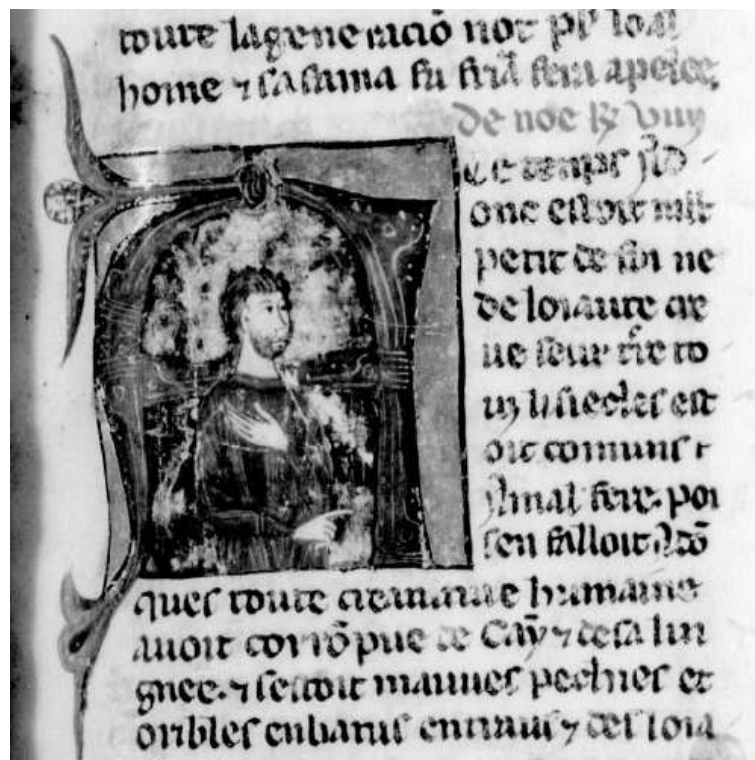 toute lagene racio not pr loal
home ⁊ sa fama fu
de noe
Ce temps
onc estoit mlt
petit de foi ne
de loiaute cre
ue seur to
uz li siecles est
oit comuns
mal fere. por
sen falloit
ques toute creature humaine
auoit corrõpue de Cay ⁊ desa lin
gnee. ⁊ sestoit mauues pechies et
oribles enbatus entraus ⁊ des loia